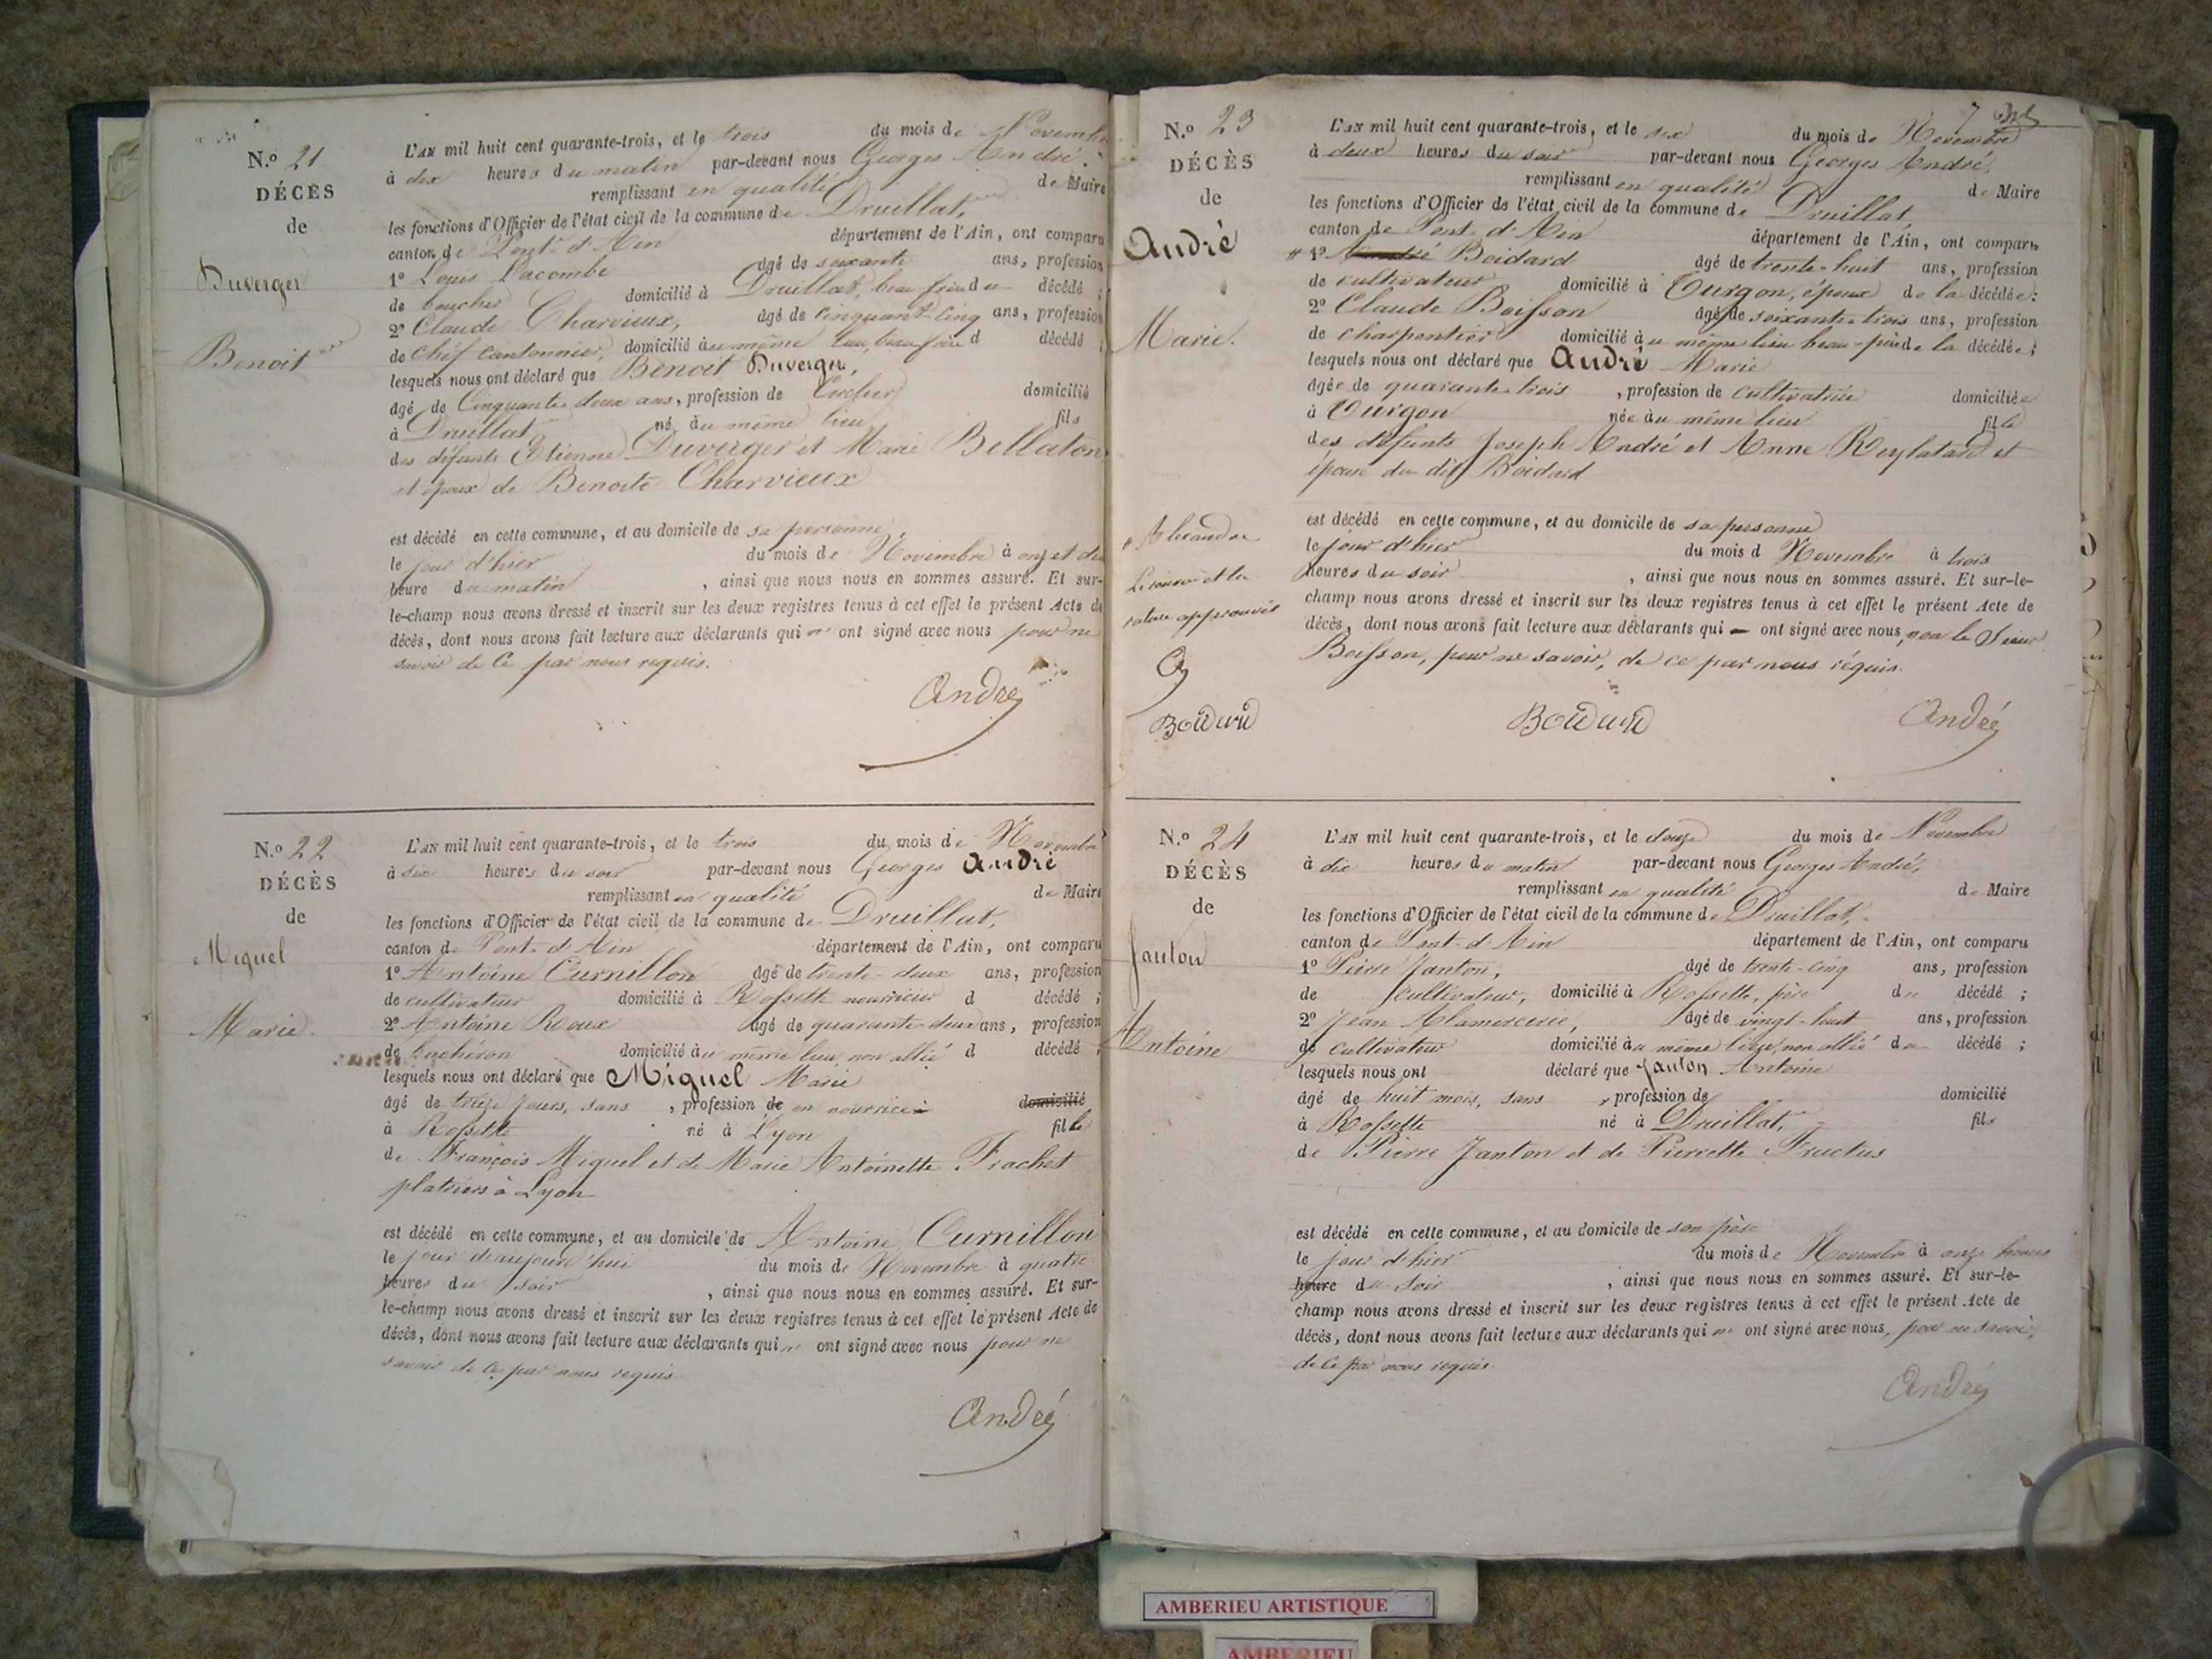 N.º 21
DÉCÈS
de
Duverger
Benoit
L'AN mil huit cent quarante-trois, et le trois du mois de Novembre
à dix heures du matin par-devant nous Georges André,
remplissant en qualité de Maire
les fonctions d'Officier de l'état civil de la commune de Druillat,
canton de Pont-d'Ain département de l'Ain, ont comparu
1º Louis Lacombe âgé de soixante ans, profession
de boucher domicilié à Druillat, beau-frère du décédé ;
2º Claude Charvieux, âgé de cinquant-cinq ans, profession
de chef cantonnier, domicilié au même lieu, beau frère d décédé ;
lesquels nous ont déclaré que Benoit Duverger,
âgé de Cinquante deux ans, profession de domicilié
à Druillat né au même lieu fils
des défunts Etienne Duverger et Marie Bellaton,
et époux de Benoite Charvieux
est décédé en cette commune, et au domicile de sa personne,
le jour d'hier du mois de Novembre à onz et
heure du matin , ainsi que nous nous en sommes assuré. Et sur-
le-champ nous avons dressé et inscrit sur les deux registres tenus à cet effet le présent Acte de
décès, dont nous avons fait lecture aux déclarants qui n' ont signé avec nous pour ne
savoir de ce par nous requis.
André
N.º 22
DÉCÈS
de
Miguel
Marie.
L'AN mil huit cent quarante-trois, et le trois du mois de Novembre
à six heures du soir par-devant nous Georges André
remplissant en qualité de Maire
les fonctions d'Officier de l'état civil de la commune de Druillat,
canton de Pont-d'Ain département de l'Ain, ont comparu
1º Antoine Curnillon âgé de trente-deux ans, profession
de cultivateur domicilié à Rossette nourricier d décédé ;
2º Antoine Roux âgé de quarante-deux ans, profession
de buchéron domicilié au même lieu non allié d décédé ;
lesquels nous ont déclaré que Miguel Marie
âgé de treize jours, sans , profession de en nourrice domicilié
à Rossette né à Lyon fille
de François Miguel et de Marie Antoinette Frachet
platriers à Lyon
est décédé en cette commune, et au domicile de Antoine Curnillon
le jour d'aujourd'hui du mois de Novembre à quatre
heures du soir , ainsi que nous nous en sommes assuré. Et sur-
le-champ nous avons dressé et inscrit sur les deux registres tenus à cet effet le présent Acte de
décès, dont nous avons fait lecture aux déclarants qui n' ont signé avec nous pour ne
savoir de ce par nous requis.
André
7
N.º 23
DÉCÈS
de
André
Marie.
L'AN mil huit cent quarante-trois, et le six du mois de Novembre
à deux heures du soir par-devant nous Georges André,
remplissant en qualité de Maire
les fonctions d'Officier de l'état civil de la commune de Druillat,
canton de Pont-d'Ain département de l'Ain, ont comparu
1º André Boidard âgé de trente-huit ans, profession
de cultivateur domicilié à Turgon, époux de la décédée ;
2º Claude Boisson âgé de soixante-trois ans, profession
de charpentier domicilié au même lieu beau-père de la décédée ;
lesquels nous ont déclaré que André Marie
âgée de quarante-trois , profession de cultivatrice domiciliée
à Turgon née au même lieu fille
des défunts Joseph André et Anne Reylatard et
épouse du dit Boidard
est décédé en cette commune, et au domicile de sa personne
le jour d'hier du mois d Novembre à trois
heures du soir , ainsi que nous nous en sommes assuré. Et sur-le-
champ nous avons dressé et inscrit sur les deux registres tenus à cet effet le présent Acte de
décès, dont nous avons fait lecture aux déclarants qui — ont signé avec nous, non le Sieur
Boisson, pour ne savoir, de ce par nous réquis.
Alexandre
Le renvoi et la
rature approuvés
Boidard
Boidard
André
N.º 24
DÉCÈS
de
Janton
Antoine
L'AN mil huit cent quarante-trois, et le douze du mois de Novembre
à dix heures du matin par-devant nous Georges André,
remplissant en qualité de Maire
les fonctions d'Officier de l'état civil de la commune de Druillat,
canton de Pont-d'Ain département de l'Ain, ont comparu
1º Pierre Janton, âgé de trente-cinq ans, profession
de cultivateur, domicilié à Rossette, père du décédé ;
2º Jean Alamercerie, âgé de vingt-huit ans, profession
de cultivateur domicilié au même lieu, non allié du décédé ;
lesquels nous ont déclaré que Janton Antoine
âgé de huit mois, sans , profession de domicilié
à Rossette né à Druillat, fils
de Pierre Janton et de Pierrette Fructus
est décédé en cette commune, et au domicile de son père
le jour d'hier du mois de Novembre à onze heures
heure du soir , ainsi que nous nous en sommes assuré. Et sur-le-
champ nous avons dressé et inscrit sur les deux registres tenus à cet effet le présent Acte de
décès, dont nous avons fait lecture aux déclarants qui n' ont signé avec nous, pour ne savoir,
de ce par nous requis.
André
AMBERIEU ARTISTIQUE
AMBERIEU